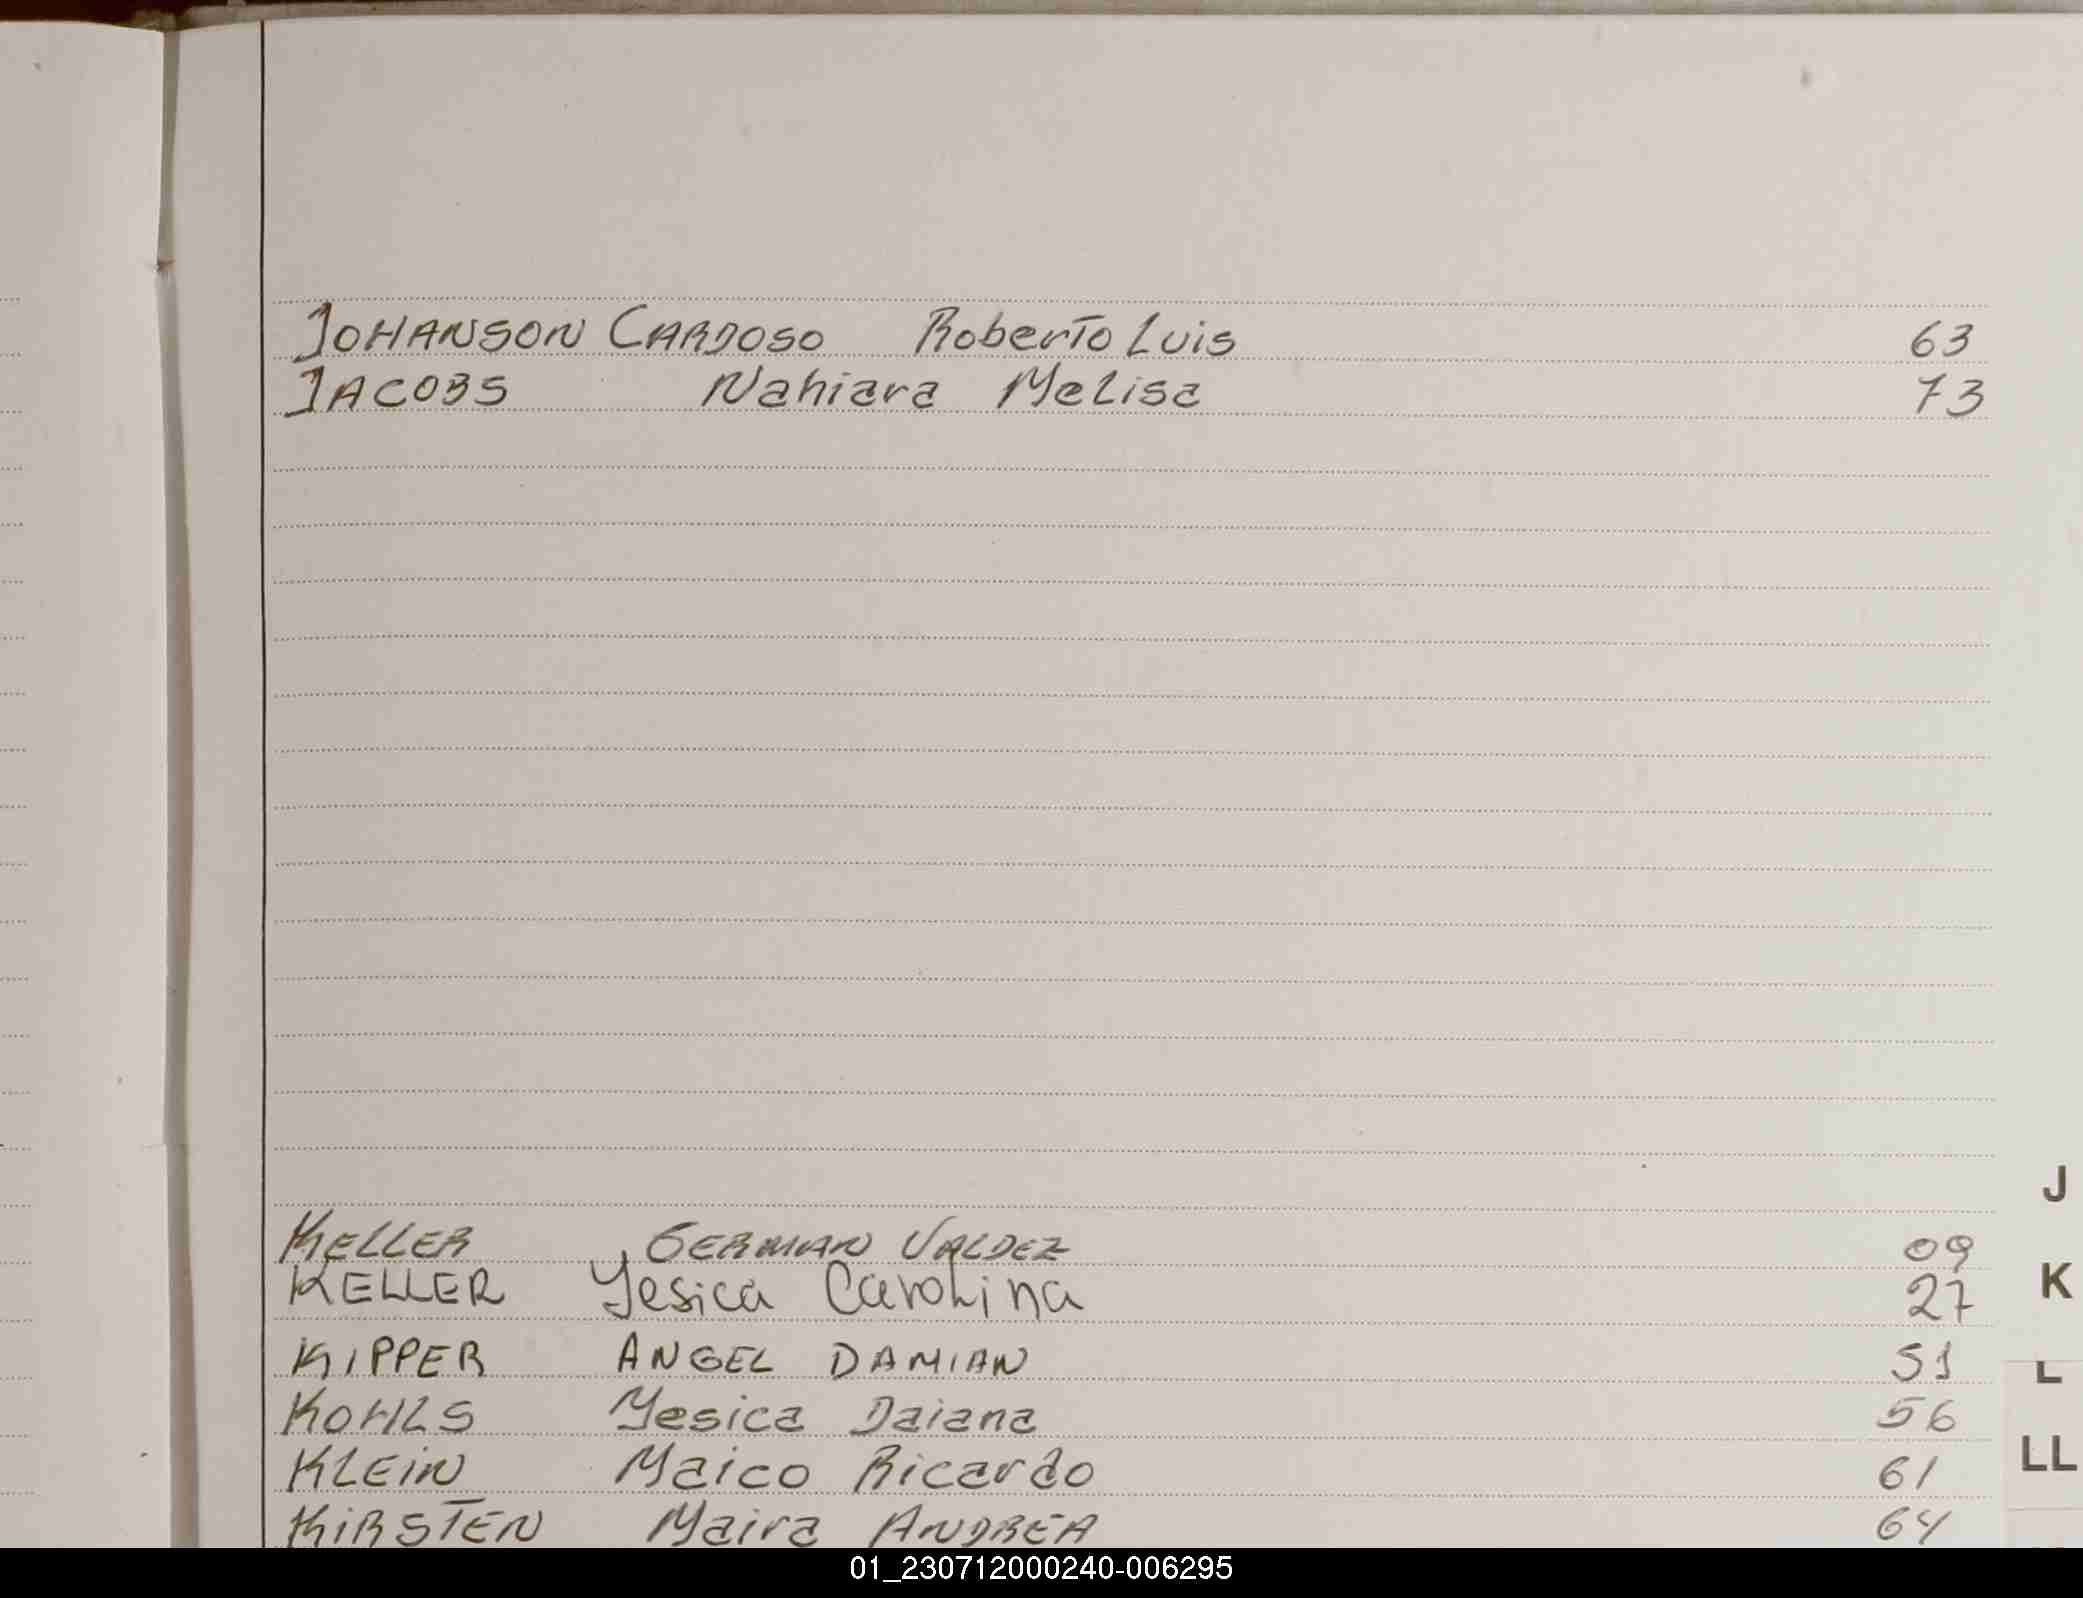 JOHANSON CARDOSO Roberto Luis 63
JACOBS Nahiara Melisa 73
KELLER GERMAN VALDEZ 09
KELLER Yesica Carolina 27
KIPPER ANGEL DAMIAN 51
KOHLS Yesica Daiana 56
KLEIN Maico Ricardo 61
KIRSTEN Maira ANDREA 64
J
K
L
LL
01_230712000240-006295